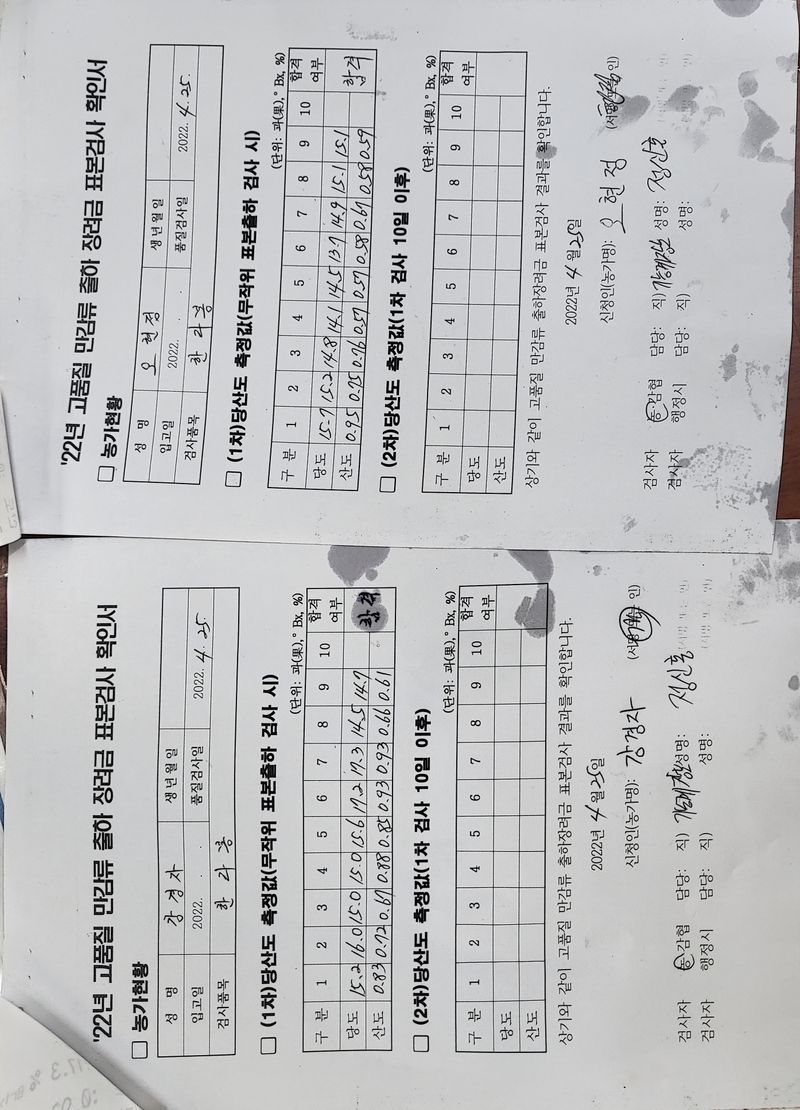 '22년 고품질 만감류 출하 장려금 표본검사 확인서
□ 농가현황
성 명 오현정 생년월일
입고일 2022. . 품질검사일 2022. 4. 25.
검사품목 한라봉
□ (1차)당산도 측정값(무작위 표본출하 검사 시)
(단위: 과(果), ° Bx, %)
구 분 1 2 3 4 5 6 7 8 9 10 합격여부
당도 15.7 15.2 14.8 14.1 14.5 13.7 14.9 15.1 15.1 합격
산도 0.95 0.75 0.76 0.57 0.57 0.58 0.67 0.58 0.59
□ (2차)당산도 측정값(1차 검사 10일 이후)
(단위: 과(果), ° Bx, %)
구 분 1 2 3 4 5 6 7 8 9 10 합격여부
당도
산도
상기와 같이 고품질 만감류 출하장려금 표본검사 결과를 확인합니다.
2022년 4월 25일
신청인(농가명): 오현정 (서명 인)
검사자 농·감협 담당: 직) 성명: 정신호
검사자 행정시 담당: 직) 성명:
'22년 고품질 만감류 출하 장려금 표본검사 확인서
□ 농가현황
성 명 강경자 생년월일
입고일 2022. . . 품질검사일 2022. 4. 25
검사품목 한라봉
□ (1차)당산도 측정값(무작위 표본출하 검사 시)
(단위: 과(果), ° Bx, %)
구 분 1 2 3 4 5 6 7 8 9 10 합격여부
당도 15.2 16.0 15.0 15.0 15.6 17.2 17.3 14.5 14.7 합격
산도 0.83 0.72 0.67 0.88 0.85 0.93 0.93 0.66 0.61
□ (2차)당산도 측정값(1차 검사 10일 이후)
(단위: 과(果), ° Bx, %)
구 분 1 2 3 4 5 6 7 8 9 10 합격여부
당도
산도
상기와 같이 고품질 만감류 출하장려금 표본검사 결과를 확인합니다.
2022년 4월 25일
신청인(농가명): 강경자 (서명 인)
검사자 농·감협 담당: 직) 성명: 정신호
검사자 행정시 담당: 직) 성명: